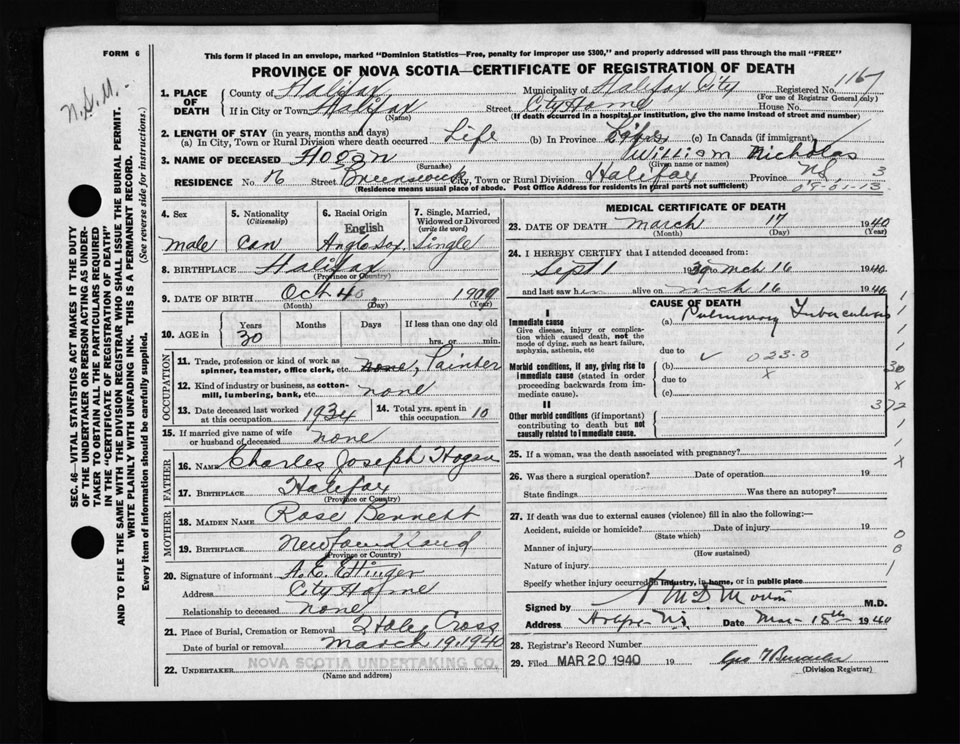 FORM 6
This form if placed in an envelope, marked "Dominion Statistics—Free, penalty for improper use $300," and properly addressed will pass through the mail "FREE"
PROVINCE OF NOVA SCOTIA—CERTIFICATE OF REGISTRATION OF DEATH
SEC. 46—VITAL STATISTICS ACT MAKES IT THE DUTY
OF THE UNDERTAKER OR PERSON ACTING AS UNDER-
TAKER TO OBTAIN ALL THE PARTICULARS REQUIRED
IN THE "CERTIFICATE OF REGISTRATION OF DEATH"
AND TO FILE THE SAME WITH THE DIVISION REGISTRAR WHO SHALL ISSUE THE BURIAL PERMIT.
WRITE PLAINLY WITH UNFADING INK. THIS IS A PERMANENT RECORD.
Every item of information should be carefully supplied. (See reverse side for instructions.)
1. PLACE OF DEATH County of Halifax Municipality of Halifax City Registered No. 1167
(For use of Registrar General only)
If in City or Town Halifax Street City Home House No.
(Name) (If death occurred in a hospital or institution, give the name instead of street and number)
2. LENGTH OF STAY (in years, months and days)
(a) In City, Town or Rural Division where death occurred Life (b) In Province Life (c) In Canada (if immigrant)
3. NAME OF DECEASED Hogan William Nicholas
(Surname) (Given name or names)
RESIDENCE No. 76 Street Brunswick City, Town or Rural Division Halifax Province NS 3
(Residence means usual place of abode. Post Office Address for residents in rural parts not sufficient) 09-01-13
4. Sex 5. Nationality 6. Racial Origin 7. Single, Married,
(Citizenship) English Widowed or Divorced
(write the word)
male Can Anglo Sax. Single
8. BIRTHPLACE Halifax
(Province or Country)
9. DATE OF BIRTH Oct 40 1909
(Month) (Day) (Year)
10. AGE in Years Months Days If less than one day
30 hrs. or min.
OCCUPATION
11. Trade, profession or kind of work as
spinner, teamster, office clerk, etc. none, Painter
12. Kind of industry or business, as cotton-
mill, lumbering, bank, etc. none
13. Date deceased last worked at this occupation 1934 14. Total yrs. spent in this occupation 10
15. If married give name of wife
or husband of deceased none
FATHER
16. NAME Charles Joseph Hogan
17. BIRTHPLACE Halifax
(Province or Country)
MOTHER
18. MAIDEN NAME Rose Bennett
19. BIRTHPLACE Newfoundland
(Province or Country)
20. Signature of informant A.E. Ettinger
Address City Home
Relationship to deceased none
21. Place of Burial, Cremation or Removal Holy Cross
Date of burial or removal March 19, 1940
22. UNDERTAKER NOVA SCOTIA UNDERTAKING CO.
(Name and address)
MEDICAL CERTIFICATE OF DEATH
23. DATE OF DEATH March 17 1940
(Month) (Day) (Year)
24. I HEREBY CERTIFY that I attended deceased from:
Sept 1 1939 to Mch 16 1940
and last saw him alive on Mch 16 1940
CAUSE OF DEATH
I
Immediate cause (a) Pulmonary Tuberculosis
Give disease, injury or complica-
tion which caused death, not the
mode of dying, such as heart failure,
asphyxia, asthenia, etc due to
Morbid conditions, if any, giving rise to (b) 023-0
immediate cause (stated in order due to
proceeding backwards from im-
mediate cause). (c)
II
Other morbid conditions (if important)
contributing to death but not
causally related to immediate cause.
1
1
1
30
x
372
1
x
25. If a woman, was the death associated with pregnancy?
26. Was there a surgical operation? Date of operation 19
State findings Was there an autopsy?
27. If death was due to external causes (violence) fill in also the following:—
Accident, suicide or homicide? Date of injury 19
(State which)
Manner of injury
(How sustained)
Nature of injury
Specify whether injury occurred in industry, in home, or in public place
Signed by M.D.
Address Date Mar 18th 1940
28. Registrar's Record Number
29. Filed MAR 20 1940 19
(Division Registrar)